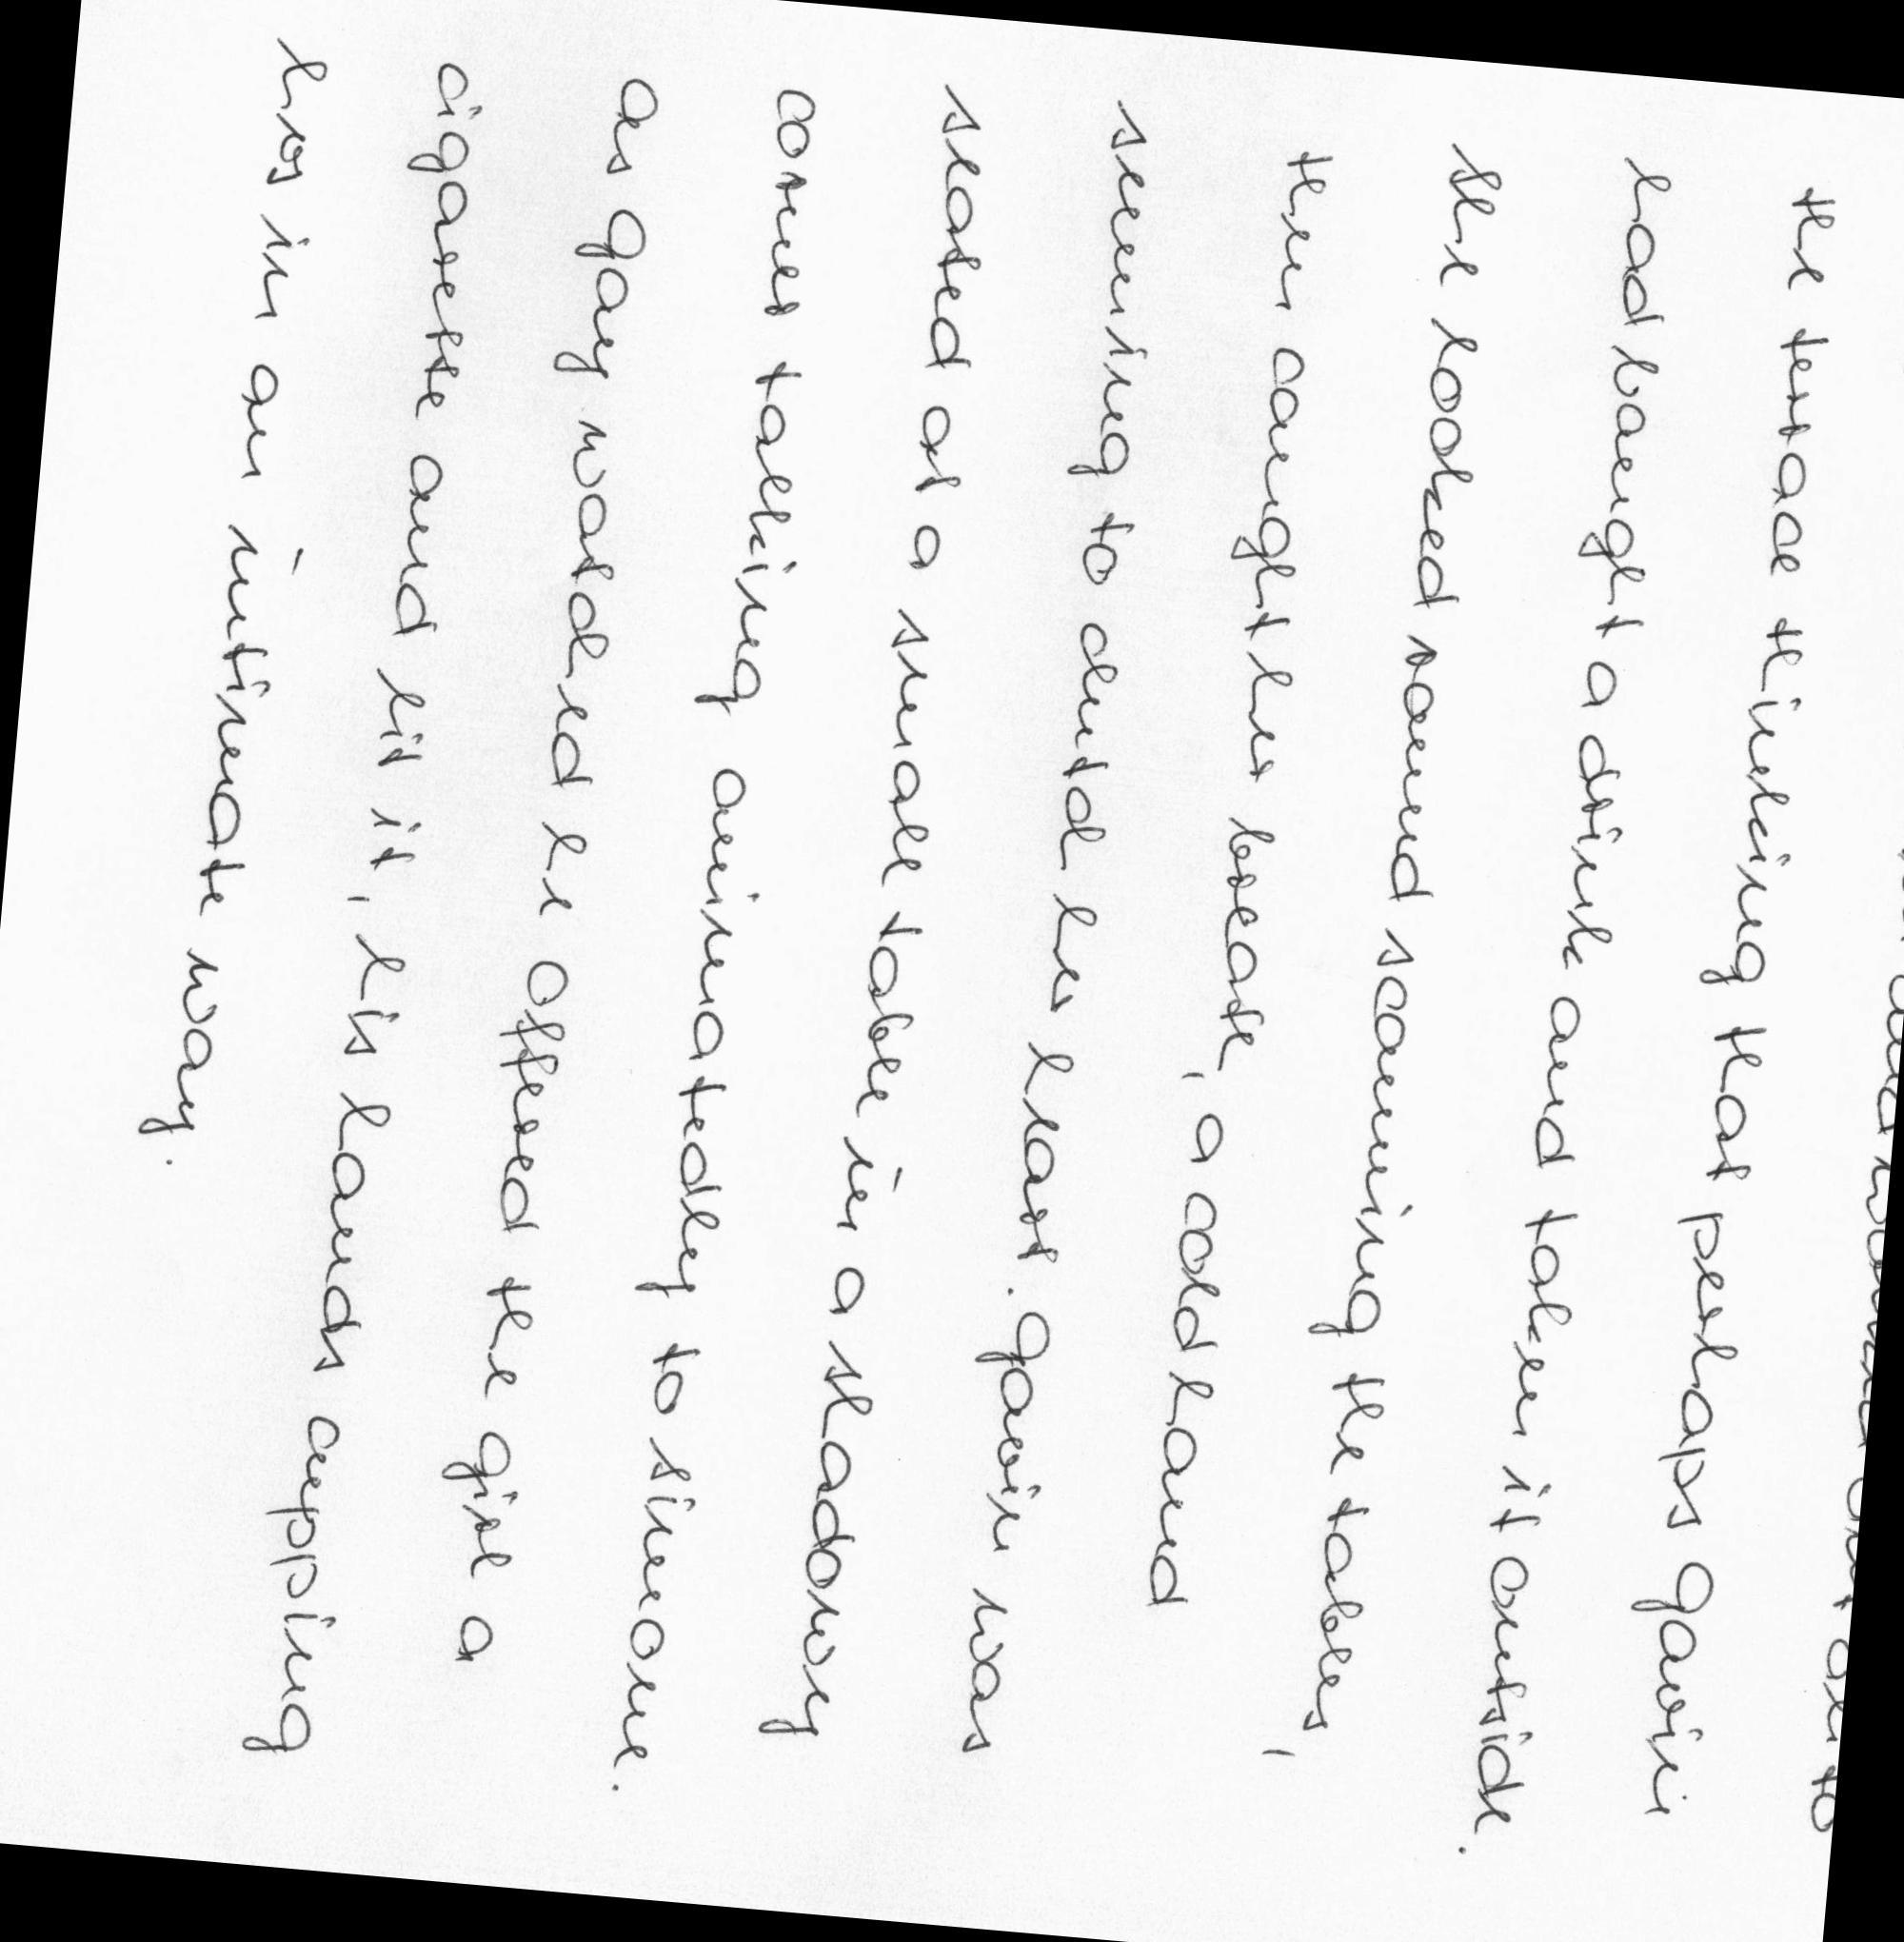 and wandered out on to
the terrace thinking that perhaps Gavin
had bought a drink and taken it outside.
She looked round scanning the tables,
then caught her breath, a cold hand
seeming to clutch her heart. Gavin was
seated at a small table in a shadowy
corner talking animatedly to Simone.
As Gay watched he offered the girl a
cigarette and lit it, his hands cupping
hers in an intimate way.